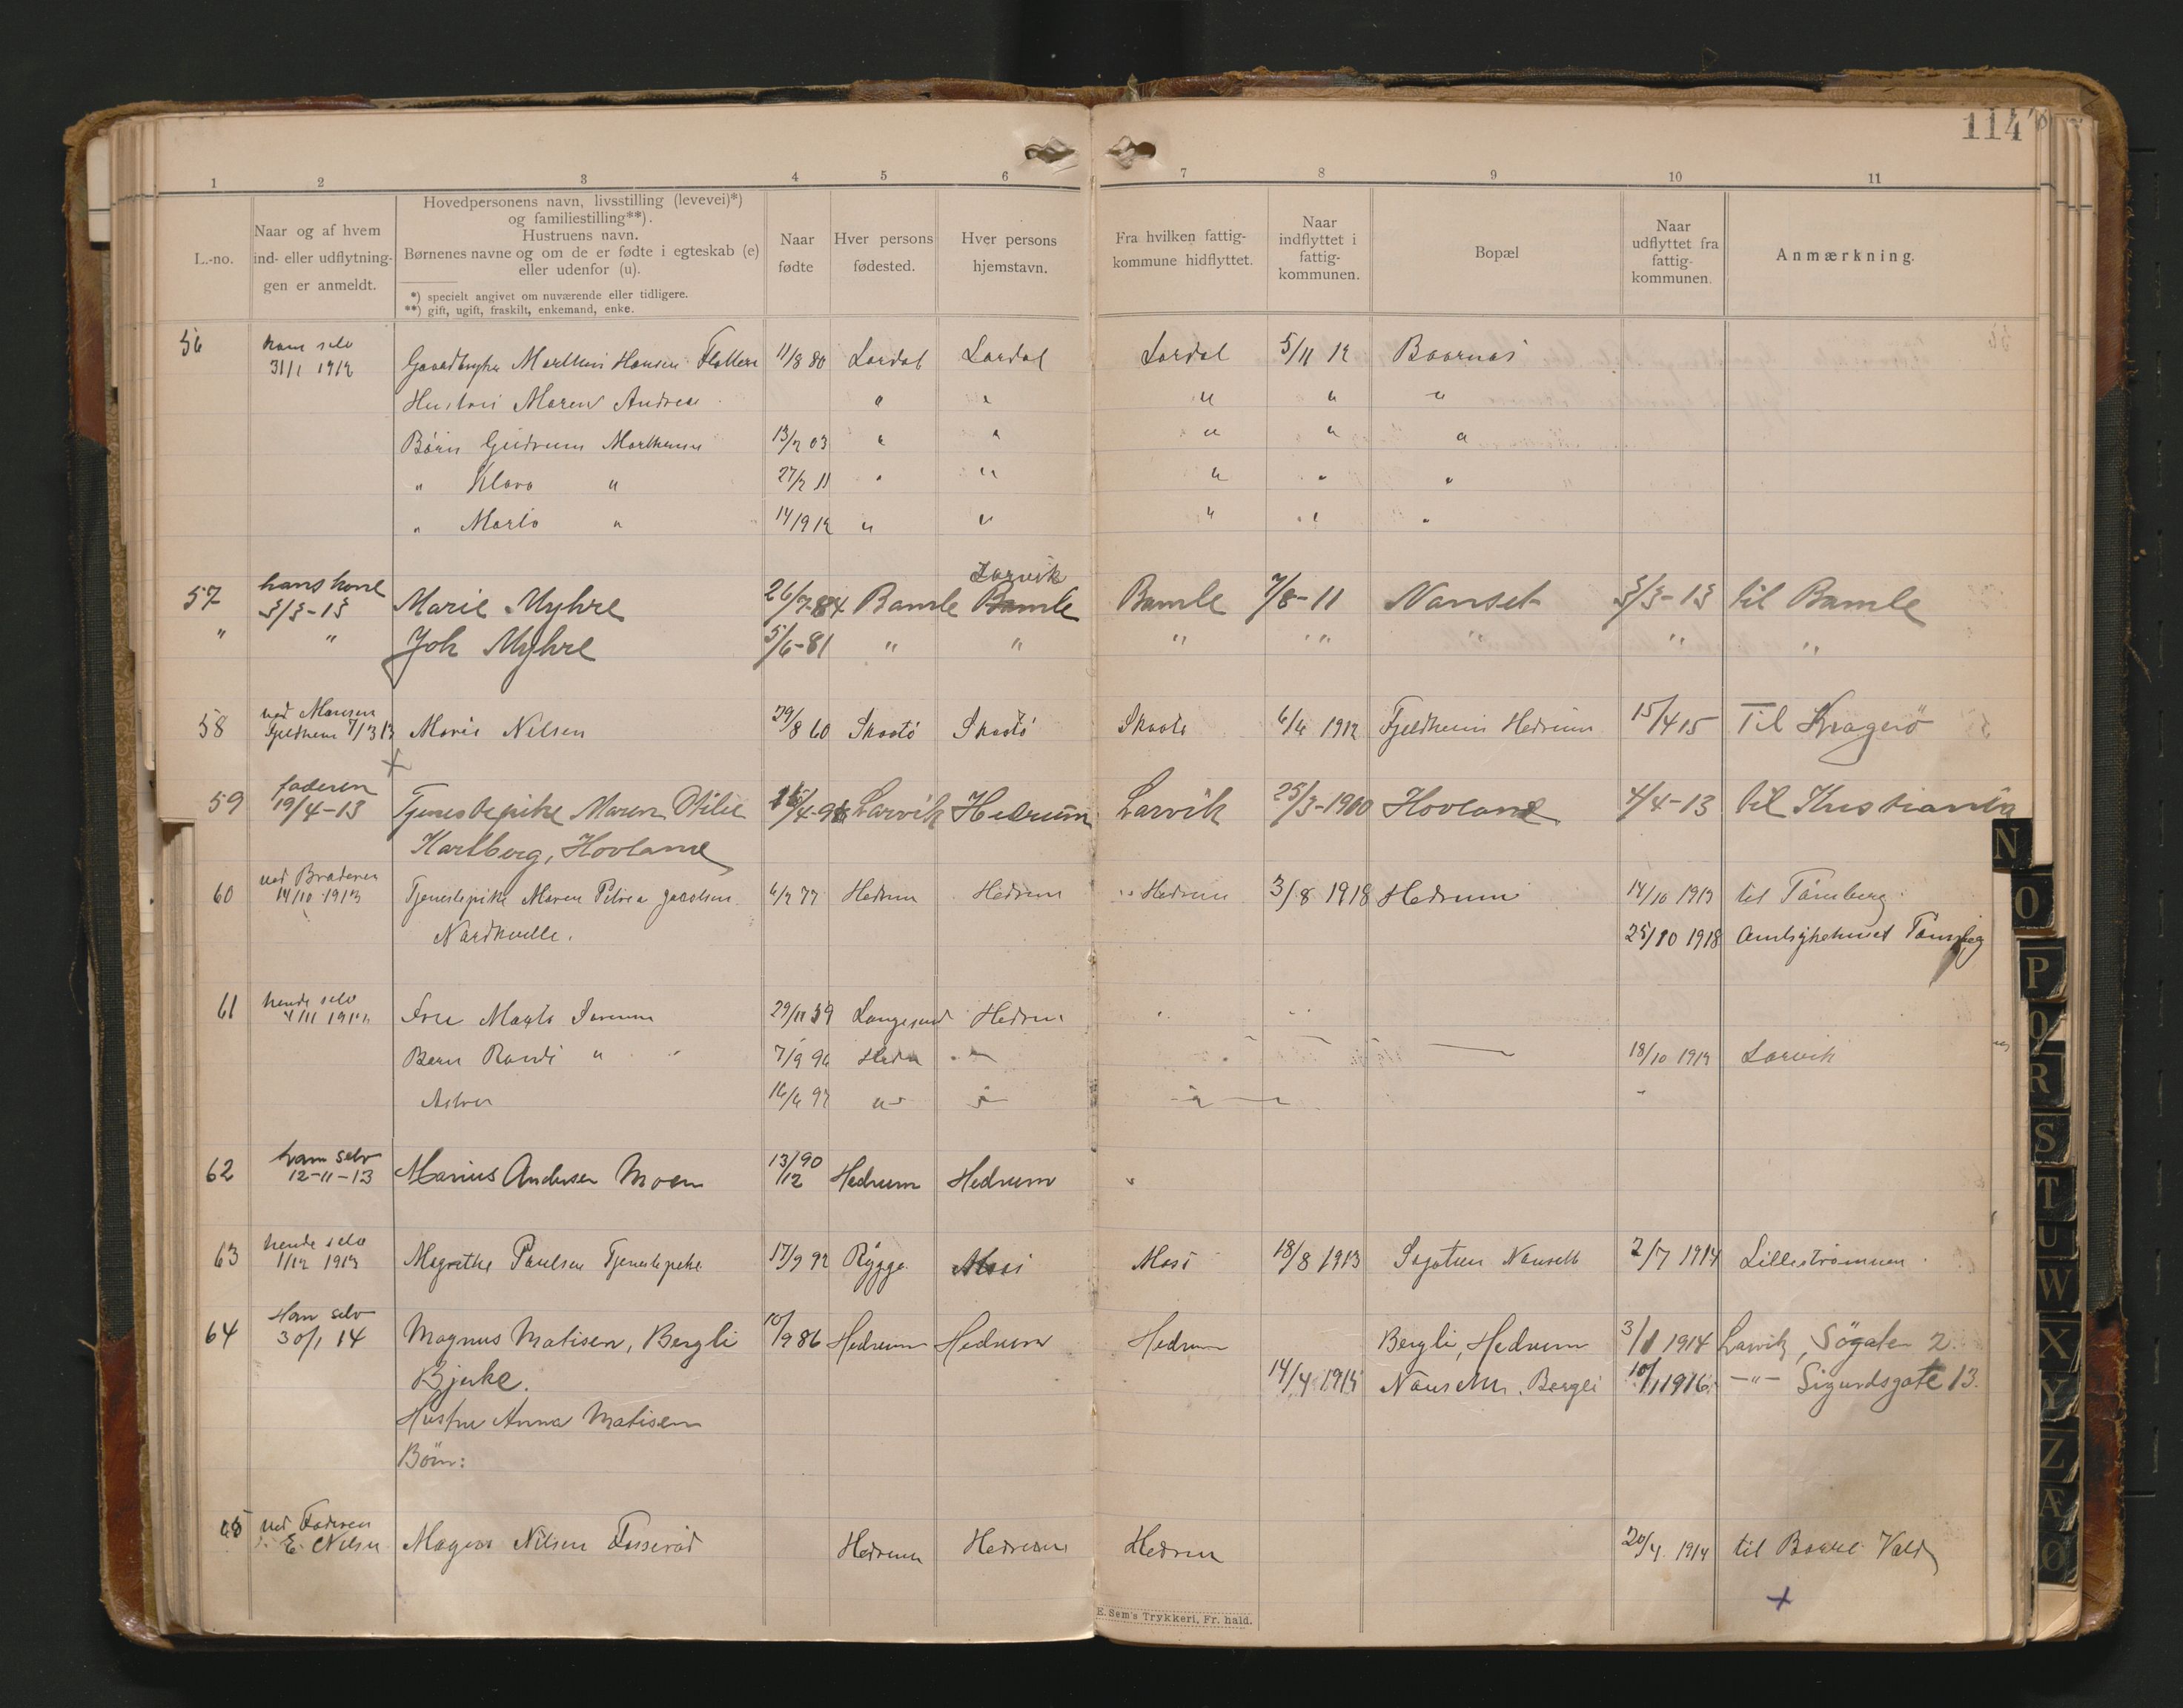 114
1 2 3 4 5 6 7 8 9 10 11
L.-no.
Naar og af hvem ind- eller udflytning- gen er anmeldt.
Hovedpersonens navn, livsstilling (levevei)*)
og familiestilling**).
Hustruens navn.
Børnenes navne og om de er fødte i egteskab (e)
eller udenfor (u).
*) specielt angivet om nuværende eller tidligere.
**) gift, ugift, fraskilt, enkemand, enke.
Naar fødte
Hver persons fødested.
Hver persons hjemstavn.
Fra hvilken fattig- kommune hidflyttet.
Naar indflyttet i fattig- kommunen.
Bopæl
Naar udflyttet fra fattig- kommunen.
Anmærkning.
56 ham selv 31/1 1912 Hansen 11/8 80 Lardal Lardal Lardal 5/11 12
Hustru Maren Andrea " " " " "
Børn Gudrun 13/2 03 " " " " "
" Klara " 27/2 11 " " " " "
" " 14/9 12 " " " " "
Larvik
57 hans kone 3/3-13 Marie Myhre 26/7-84 Bamle Bamle Bamle 7/8-11 Nanset 3/3-13 til Bamle
" " Joh Myhre 5/6-81 " " " " " " "
58 ved Fjeldheim 7/3 13 Marie Nilsen 29/8 60 Skaatö Skaatö Skaatö 6/6 1912 Fjeldheim Hedrum 15/4 15 Til Kragerö
59 faderen 19/4-13 Tjenestepike Maren Otilie Larvik Hedrum Larvik 25/3-1900 Hovland 4/4-13 til Kristiania
Karlberg, Hovland
60 ved Broderen 14/10 1913 Tjenestepike Maren Petrea 6/2 77 Hedrum Hedrum Hedrum 3/8 1918 Hedrum 14/10 1913 til Tönsberg
25/10 1918 Amtsykehuset Tönsberg
61 hende selv Fru 29/11 59 Langesund Hedrum
Barn Randi " 7/9 96 Hedrum 18/10 1913 Larvik
16/6 97 "
62 ham selv 12-11-13 Marius Andersen Moen 13/12 90 Hedrum Hedrum
63 hende selv 1/12 1913 Magrethe Paulsen Tjenestepike 17/9 92 Rygge Moss Moss 18/8 1913 2/7 1914 Lilleströmmen
64 Ham selv 30/1 14 Magnus Matisen, Bergli 10/9 86 Hedrum Hedrum Hedrum Bergli, Hedrum 3/1 1914 Larvik, Sögaten 2.
Bjerke. 14/4 1915 Bergli 10/1 1916 -"- Sigurdsgate 13.
Hustru Anna Matisen
Börn:
65 ved Faderen E. Nilsen Nilsen Hedrum Hedrum Hedrum 20/4 1914 til
E. Sem's Trykkeri, Fr. hald.
N
O
P
Q
R
S
T
U
W
X
Y
Z
Æ
Ø